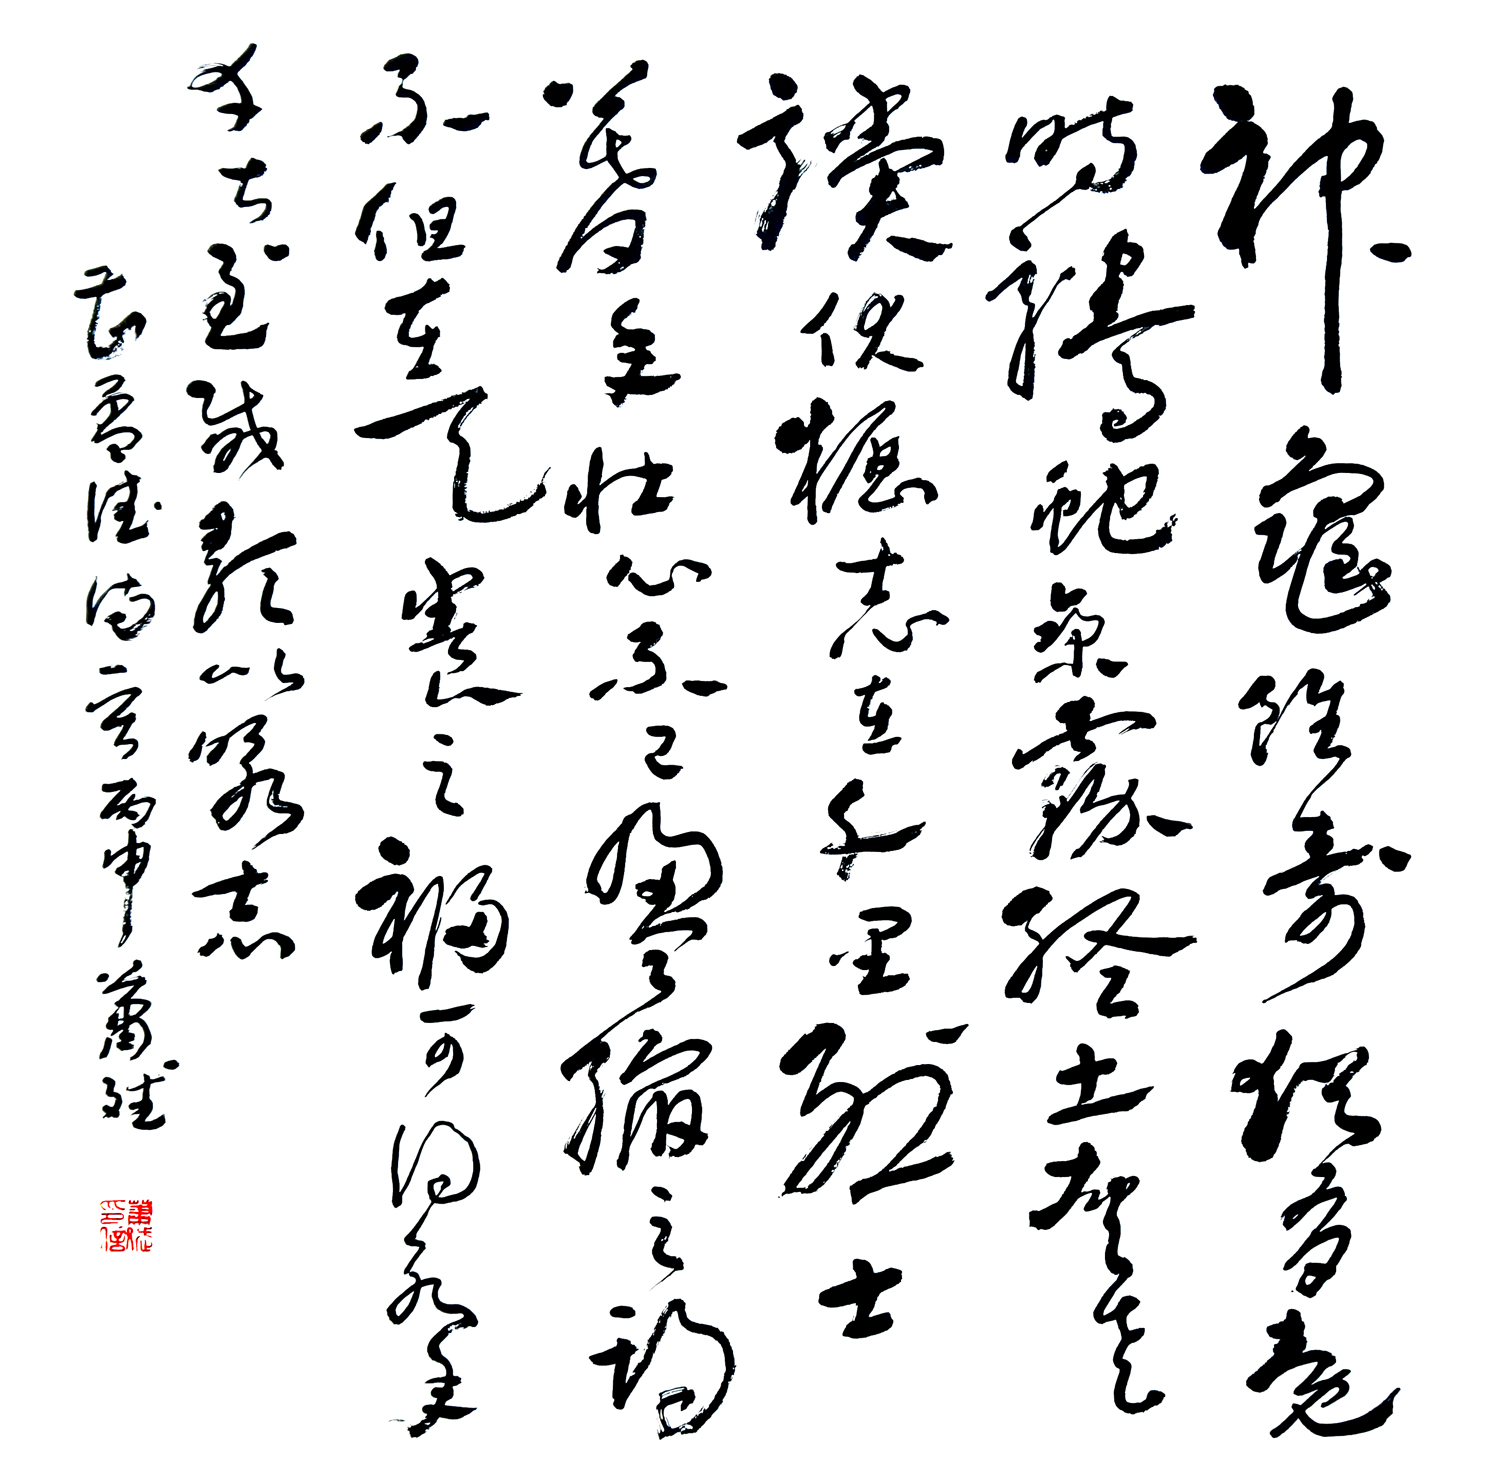 神龜雖壽猶有竟
時騰蛇乘霧終土老
驥伏櫪志在千里烈士
暮年壯心不已盈縮之期
不但在天養之福可得永年
幸甚至哉歌以詠志
曹孟德詩一首丙申蕭